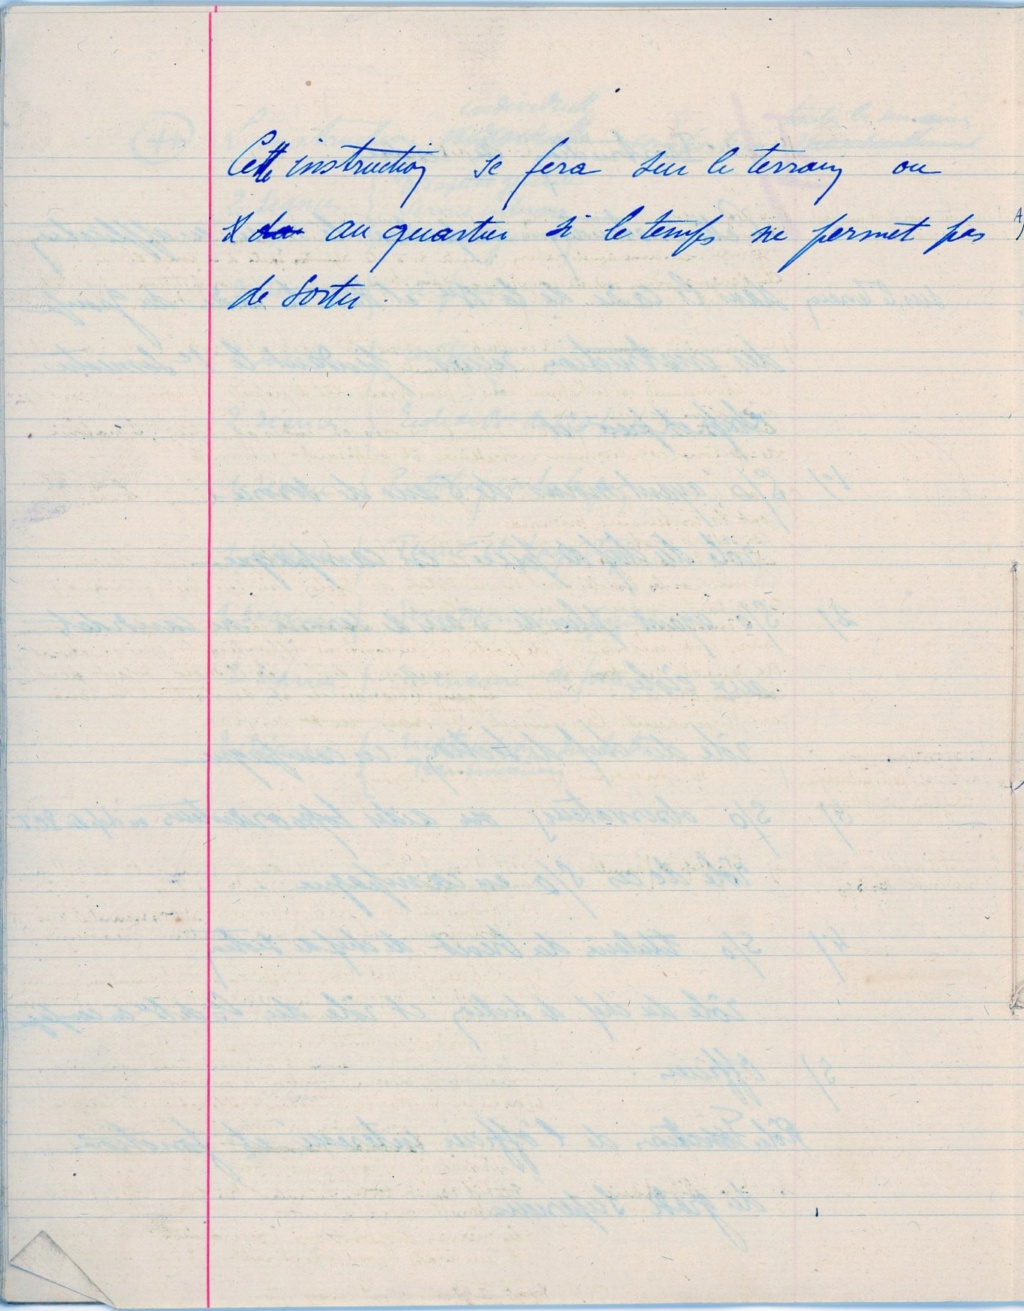 Cette instruction se fera sur le terrain ou
au quartier si le temps ne permet pas
de sortir.